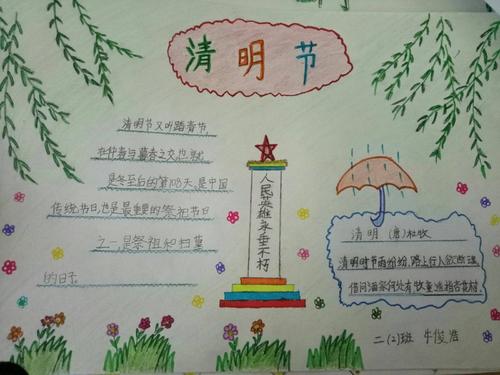 清明节
清明节又叫踏青节,
在仲春与暮春之交,也就
是冬至后的第108天,是中国
传统节日,也是最重要的祭祖节日
之一,是祭祖和扫墓
的日子
人民英雄永垂不朽
清明 (唐)杜牧
清明时节雨纷纷,路上行人欲断魂
借问酒家何处有牧童遥指杏花村
二(2)班 牛俊浩